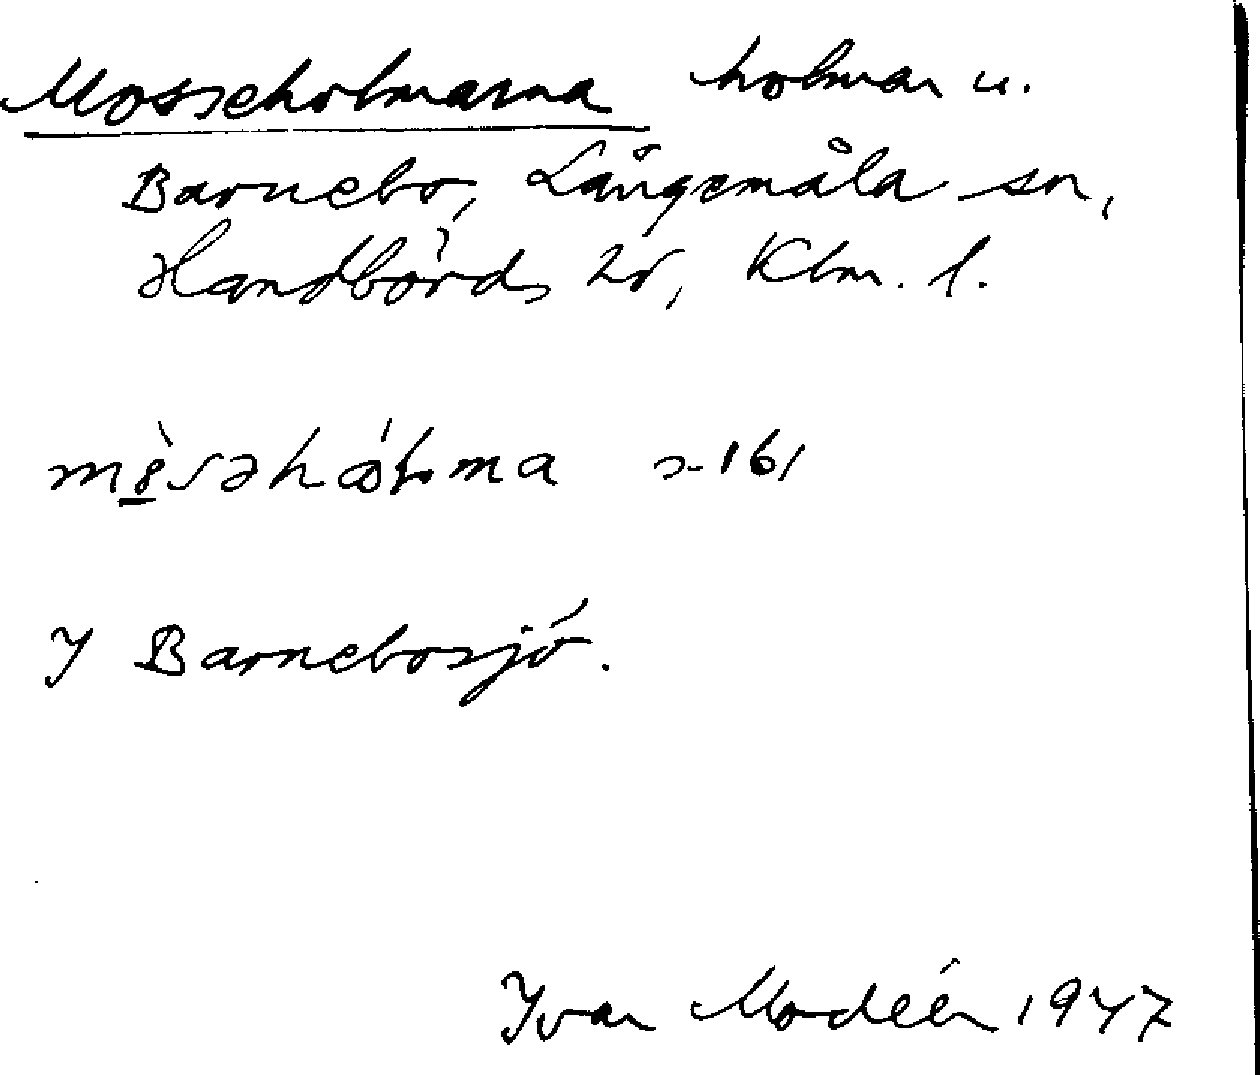 Mosseholmarna holmar u.
Barnebo, Långemåla sn,
Handbörds hd, Klm. l.
I Barnebosjö.
Ivar Modéer 1947